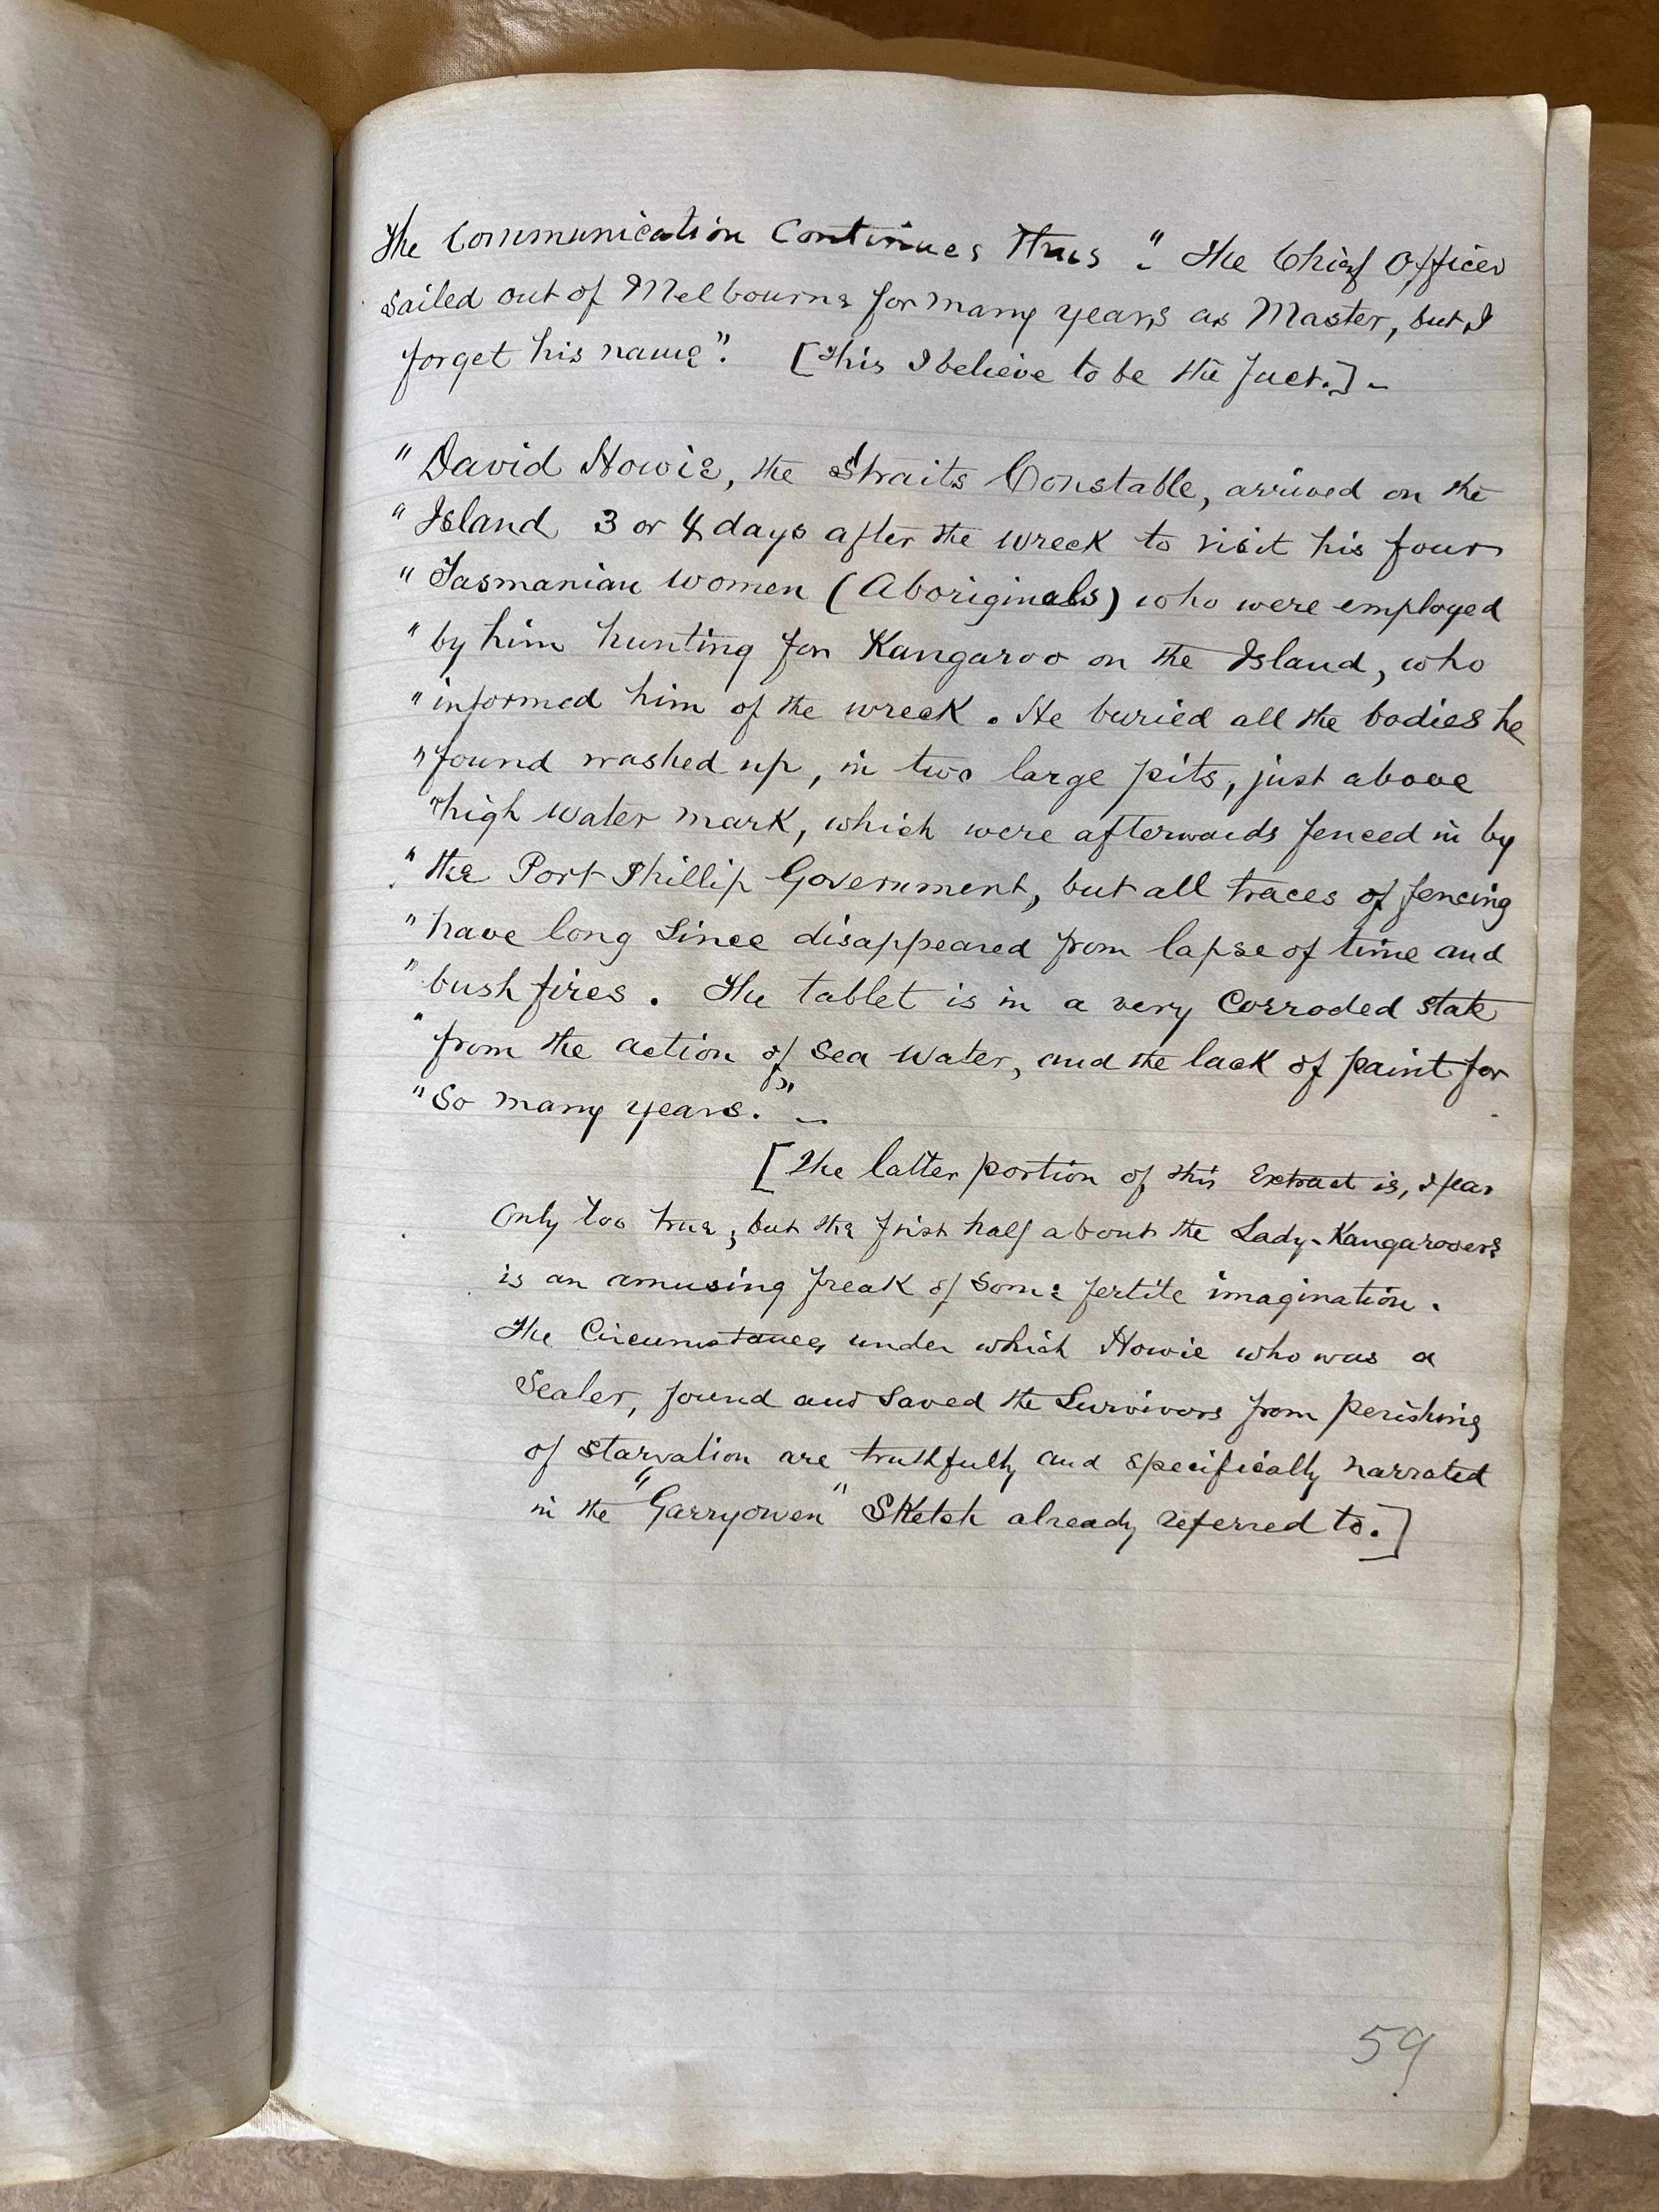 The Communication Continues Thus :" The Chief Officer
sailed out of Melbourne for many years as Master, but I
forget his name". [This I believe to be the fact.] –
" David Howie, the Straits Constable, arrived on the
" Island 3 or 4 days after the wreck to visit his four
" Tasmanian women (Aboriginals) who were employed
" by him hunting for Kangaroo on the Island, who
" informed him of the wreck. He buried all the bodies he
" found washed up, in two large pits, just above
" high water mark, which were afterwards fenced in by
" the Port Phillip Government, but all traces of fencing
" have long since disappeared from lapse of time and
" bush fires. The tablet is in a very Corroded state
" from the action of Sea Water, and the lack of paint for
" So many years." –
[The latter portion of this Extract is, I fear
only too true; but the first half about the Lady-Kangarooers
is an amusing freak of some fertile imagination.
The Circumstances under which Howie who was a
Sealer, found and Saved the Survivors from perishing
of starvation are truthfully and specifically narrated
in the "Garryowen" Sketch already referred to.]
59